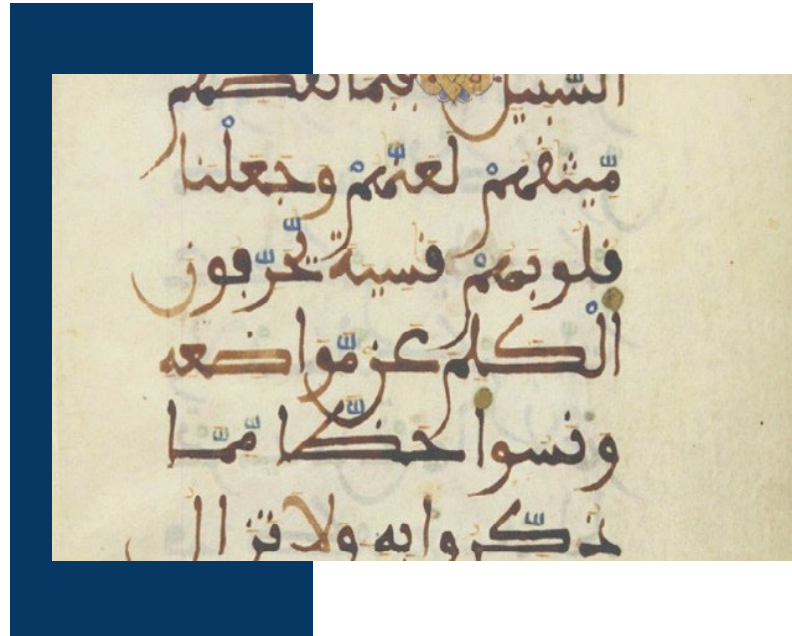 السّبيل فبما نقضهم
مّيثقهمْ لعنّهمْ وجعلْنا
قلوبهمْ قسية يّحرّفون
الْكلم عن مّواضعه
ونسوا حظّا مّمّا
ذكّروا به ولا تزال